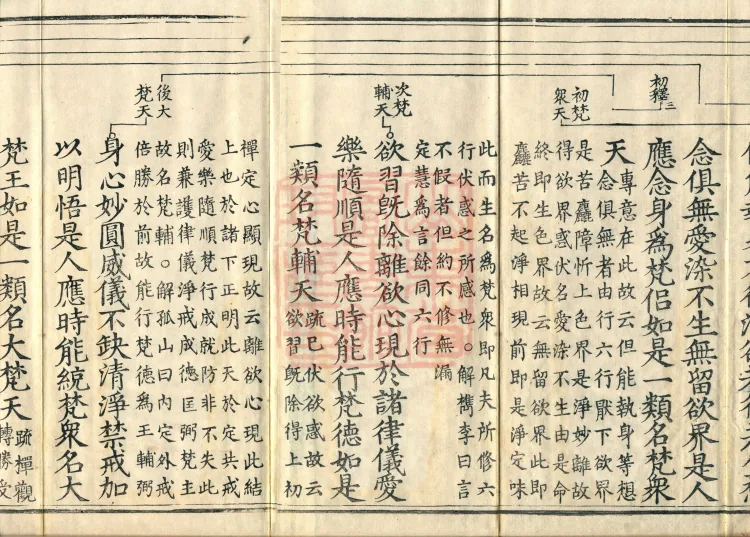 初釋三
初梵
衆天
次梵
輔天
後大
梵天
念俱無愛染不生無留欲界是人
應念身爲梵侶如是一類名梵衆
天
專意在此故云但能執身等想
念俱無者由行六行厭下欲界
是苦麤障忻上色界是淨妙離故
得欲界惑伏名愛染不生由是命
終即生色界故云無留欲界此即
麤苦不起淨相現前即是淨定味
此而生名爲梵衆即凡夫所修六
行伏惑之所感也。解檇李曰言
不假者但約不修無漏
定慧爲言餘同六行
欲習旣除離欲心現於諸律儀愛
樂隨順是人應時能行梵德如是
一類名梵輔天
疏已伏欲惑故云
欲習旣除得上初
禪定心顯現故云離欲心現此結
上也於諸下正明此天於定共戒
愛樂隨順梵行成就防非不失此
則兼護律儀淨戒成德匡弼梵主
故名梵輔。解孤山曰內定外戒
倍勝於前故能行梵德爲王輔弼
身心妙圓威儀不缺清淨禁戒加
以明悟是人應時能統梵衆名大
梵王如是一類名大梵天
疏禪觀
轉勝受